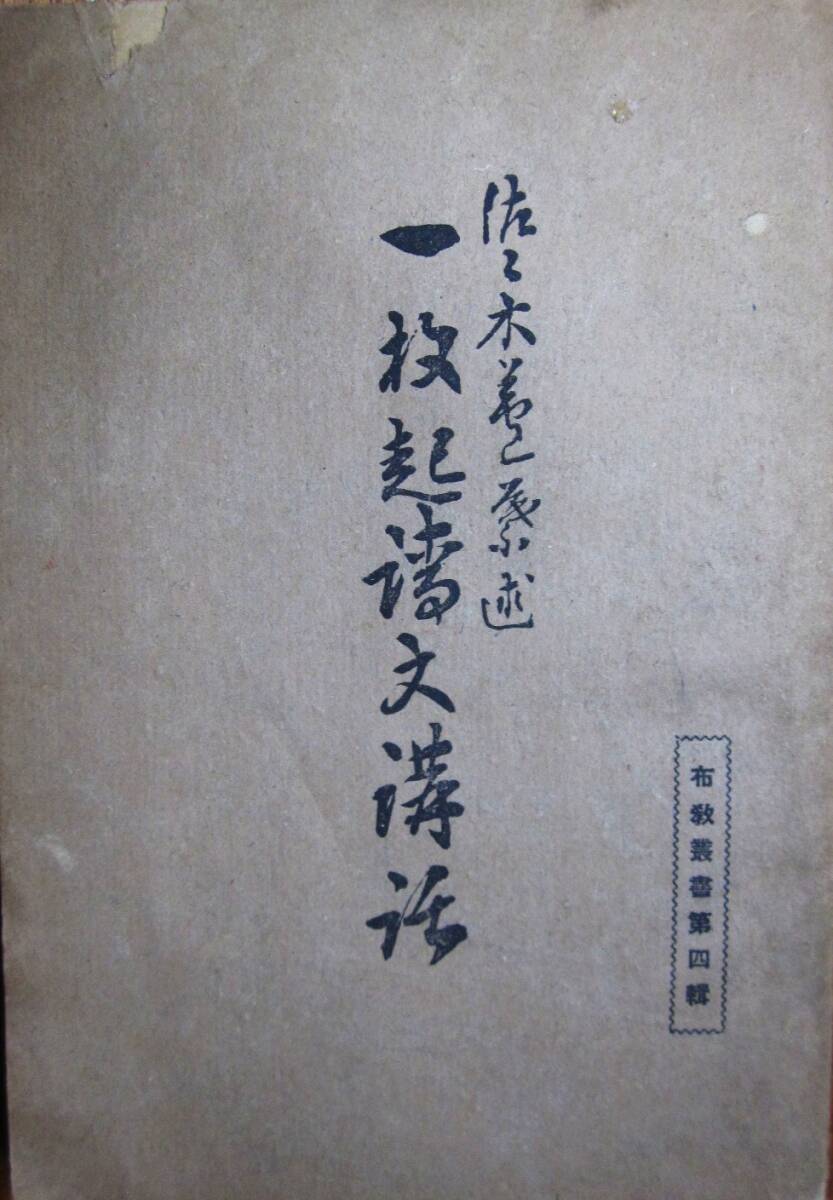 布教叢書第四輯
佐々木 述
一枚起請文講話